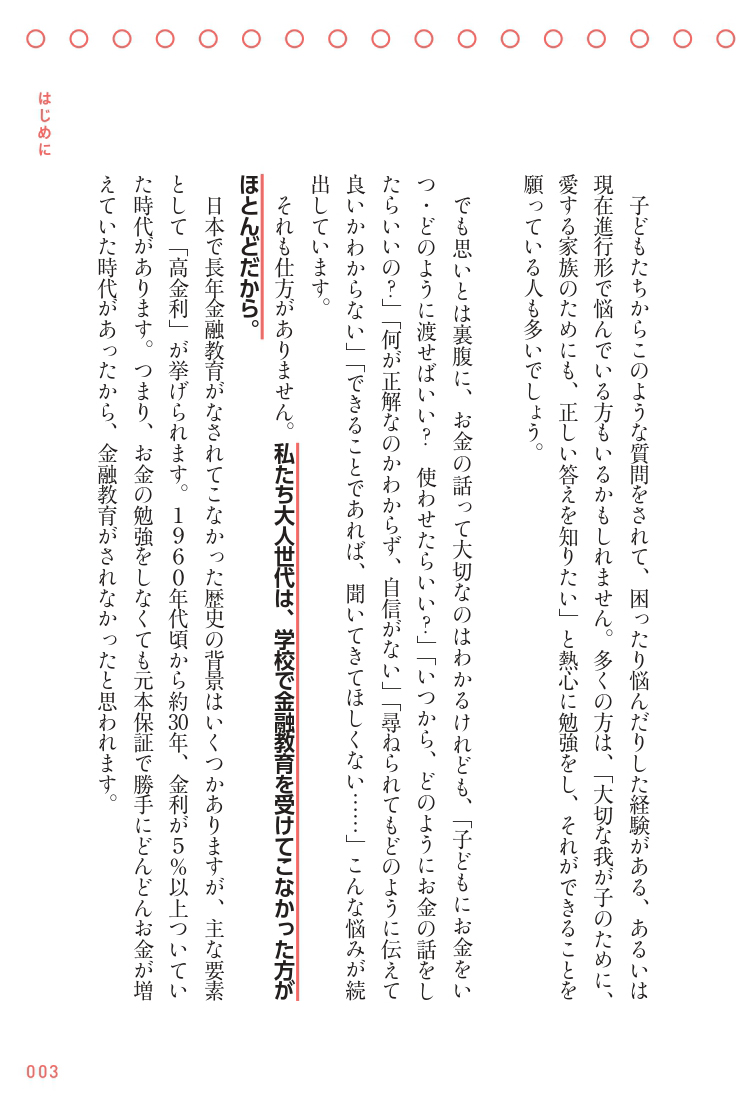 はじめに
　子どもたちからこのような質問をされて、困ったり悩んだりした経験がある、あるいは
現在進行形で悩んでいる方もいるかもしれません。多くの方は、「大切な我が子のために、
愛する家族のためにも、正しい答えを知りたい」と熱心に勉強をし、それができることを
願っている人も多いでしょう。
　でも思いとは裏腹に、お金の話って大切なのはわかるけれども、「子どもにお金をい
つ・どのように渡せばいい？　使わせたらいい？」「いつから、どのようにお金の話をし
たらいいの？」「何が正解なのかわからず、自信がない」「尋ねられてもどのように伝えて
良いかわからない」「できることであれば、聞いてきてほしくない……」こんな悩みが続
出しています。
　それも仕方がありません。私たち大人世代は、学校で金融教育を受けてこなかった方が
ほとんどだから。
　日本で長年金融教育がなされてこなかった歴史の背景はいくつかありますが、主な要素
として「高金利」が挙げられます。１９６０年代頃から約30年、金利が５％以上ついてい
た時代があります。つまり、お金の勉強をしなくても元本保証で勝手にどんどんお金が増
えていた時代があったから、金融教育がされなかったと思われます。
003